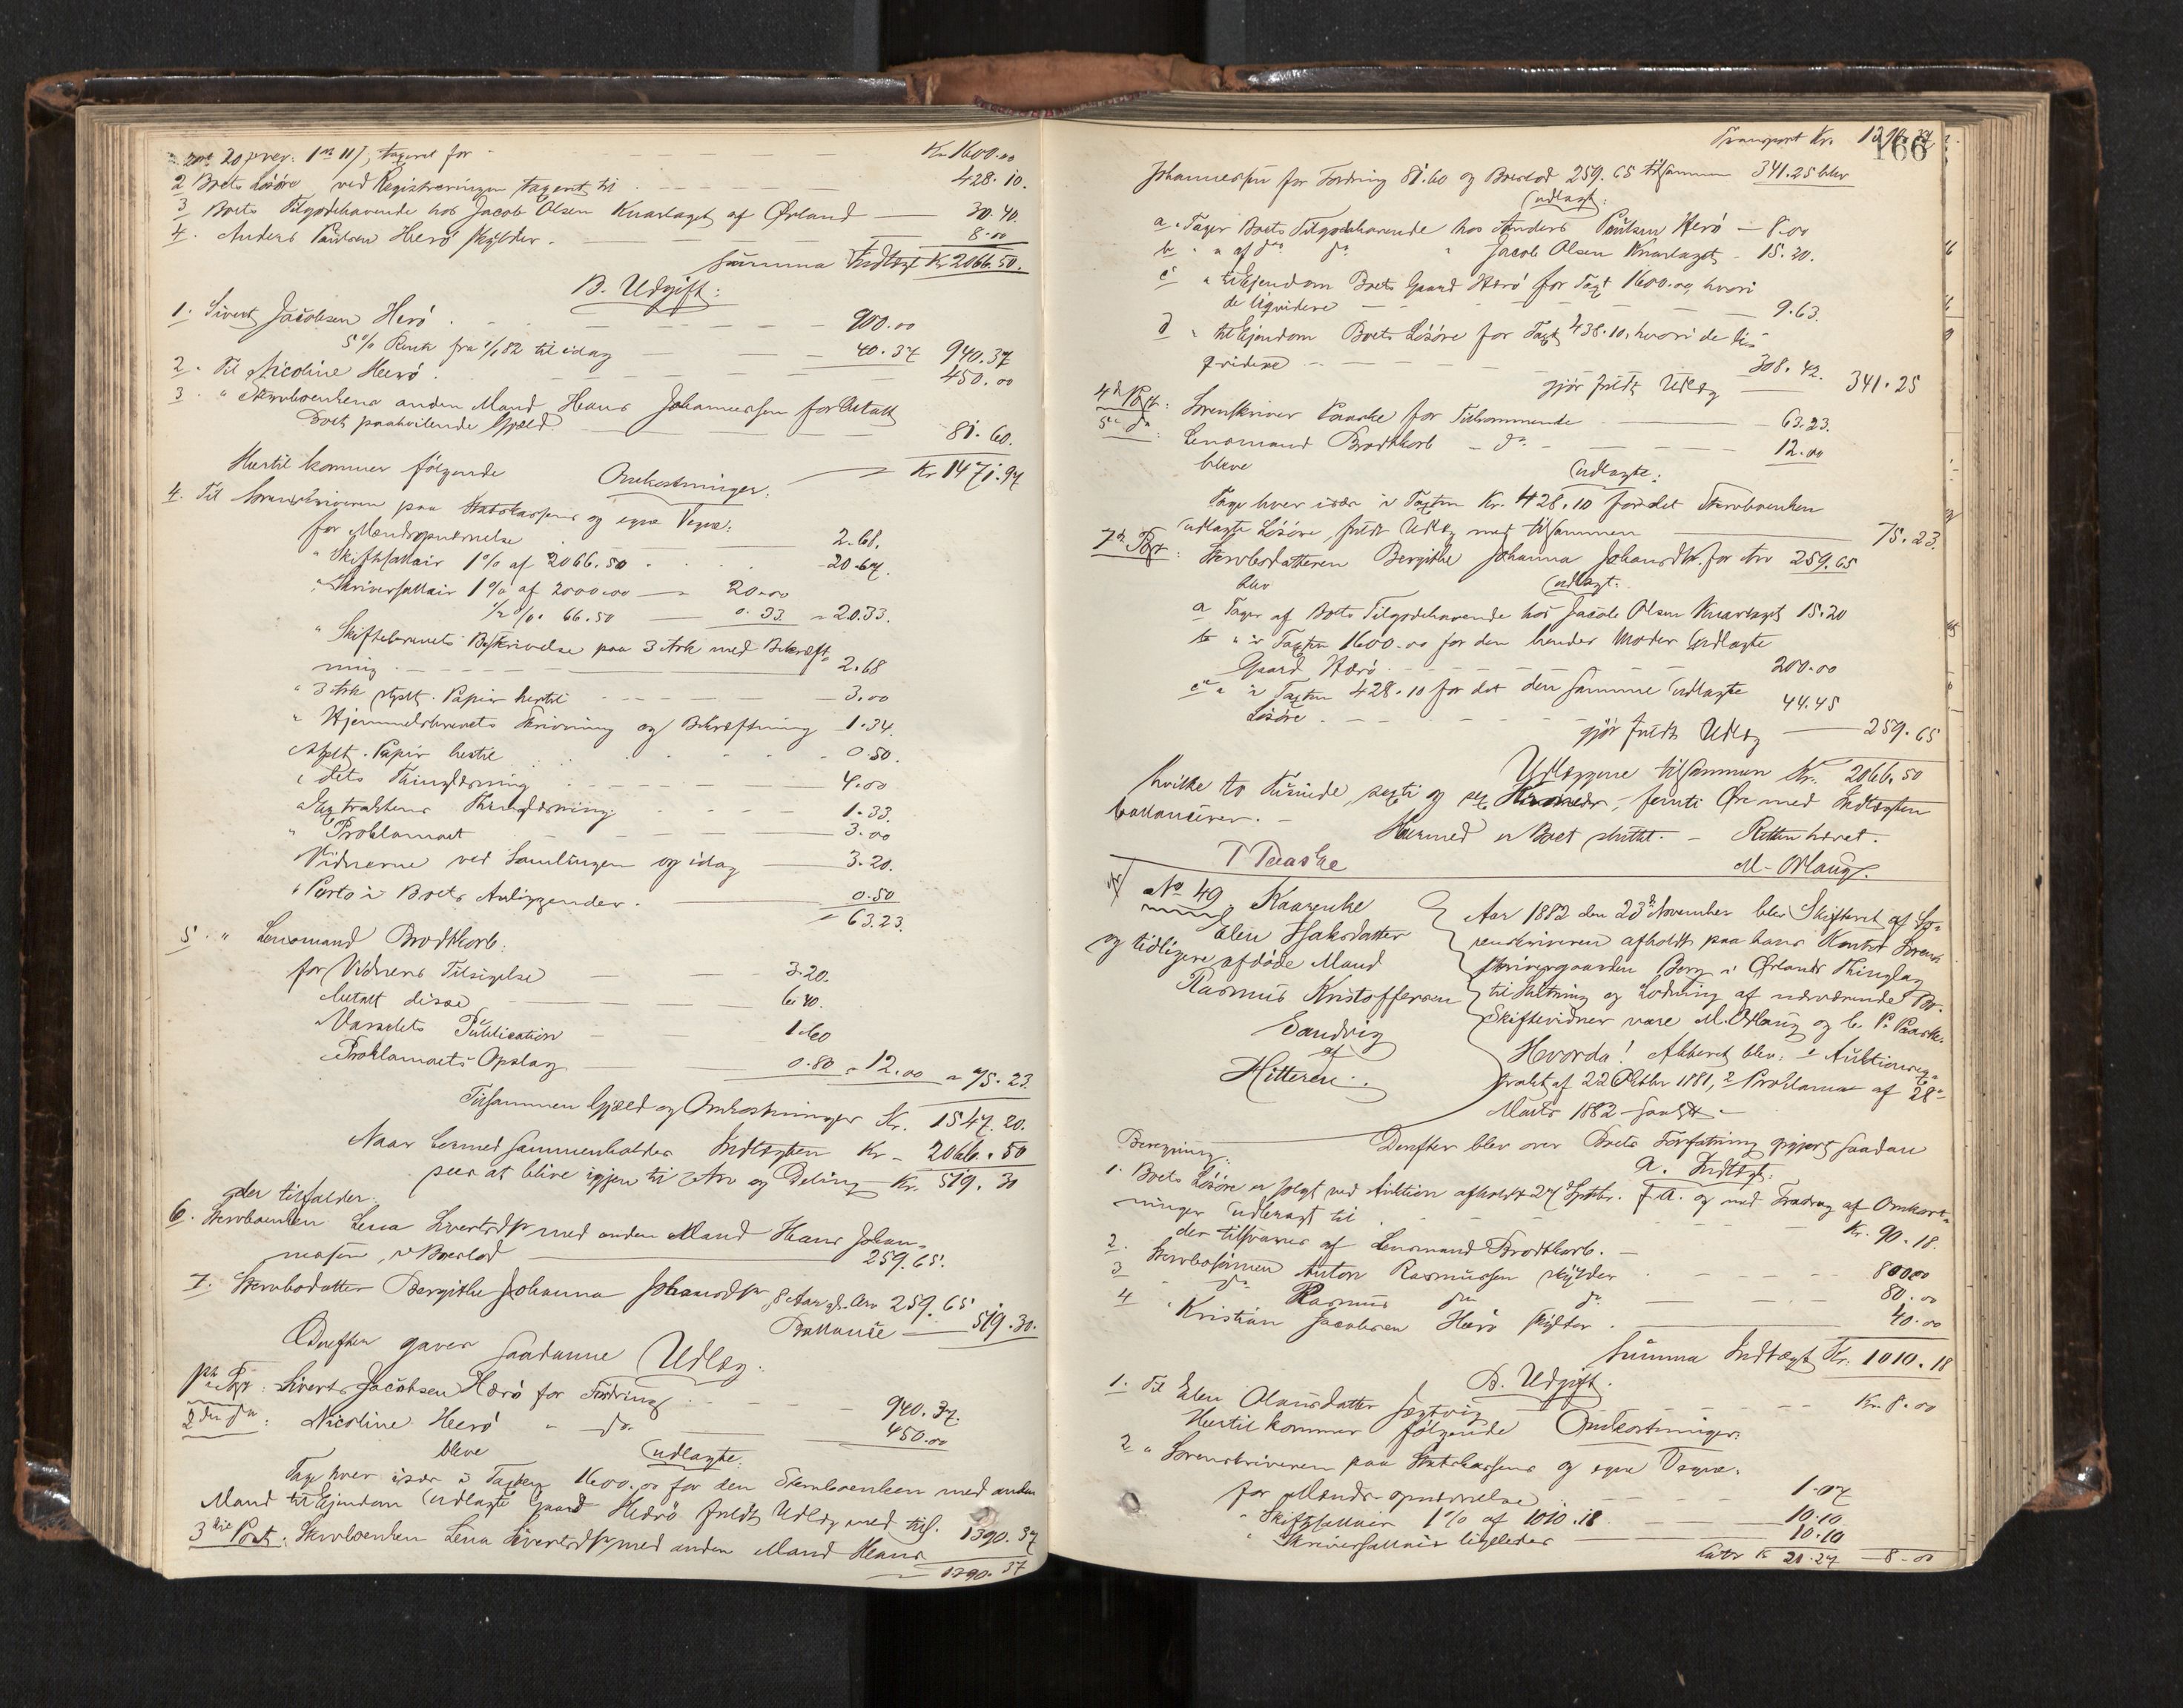 20 prver: 1 m 11/, taxeret for Kr 1600.00
2 Boets Løsøre ved Registreringen taxeret til 428.10.
3 Boets Tilgodehavende hos Jacob Olsen Knarlaget af Ørland 30.40.
4. Anders Paulsen Herø skylder. 8.00
Summa Indtægt Kr 2066.50.
B. Udgift:
1. Sivert Jacobsen Herø. 900.00
5% Rente fra til idag 40.37 940.37
2. Til Nicoline Herø. 450.00
3. " Stervboenkens anden Mand Hans Johannessen for betalt
Boet paahvilende Gjæld 81.60.
Kr 1471.97
Hertil kommer følgende Omkostninger:
4. Til Sorenskriveren paa Statskassens og egne Vegne:
for Mændsopnævnelse 2.68.
" Skiftesallair 1% af 2066.50 20.67.
" Skriversallair 1% af 2000.00 20.00
1/2 % " 66.50 0.33 " 20.33.
" Skiftebrevets Beskrivelse paa 3 Ark med Bekræft-
ning 2.68
" 3 Ark stplt. Papir hertil 3.00
" Hjemmelsbrevets Skrivning og Bekræftning 1.34.
stplt. Papir hertil 0.50.
" dets Thinglæsning 4.00
" Extraktens Thinglæsning 1.33.
" Proklamaet 3.00
Vidnerne ved Samlingen og idag 3.20.
" Porto i Boets Anliggender. 0.50
63.23.
5. " Lensmand Brodtkorb:
for Vidners Tilsigelse 3.20.
betalt disse 6.40.
Varselets Publication 1.60
Proklamaets Opslag 0.80 " 12.00 " 75.23.
Tilsammen Gjæld og Omkostninger Kr. 1547.20.
Naar hermed sammenholdes Indtægten Kr. 2066.50
sees at blive igjen til Arv og Deling Kr. 519.30
der tilfalder:
6. Stervboenken Lena Sivertsdtr med anden Mand Hans Johan-
nessen, i Boeslod 259.65.
7. Stervbodatter Bergithe Johanna Johansdtr 8 Aar gl. Arv 259.65
Ballance 519.30.
Derefter gaves saadanne Udlæg:
1ste Post: Sivert Jacobsen Herø for Fordring 940.37.
2den do: Nicoline Herø " do. 450.00
bleve udlagte:
Tage hver især i Taxten 1600.00 for den Stervboenken med anden
Mand til Ejendom udlagte Gaard Herø fuldt Udlæg med tils. 1390.37
3die Post: Stervboenken Lena Sivertsdtr med anden Mand Hans
1390.37
166
Transport Kr. 1390.37
Johannessen for Fordring 81.60 og Boeslod 259.65 tilsammen 341.25 blev
udlagt:
a. Tager Boets Tilgodehavende hos Anders Paulsen Herø 8.00
b " af do do " Jacob Olsen Knarlaget 15.20.
c " til Ejendom Boets Gaard Herø for Taxt 1600.00, hvori
de liqvidere 9.63.
d " til Ejendom Boets Løsøre for Taxt 438.10, hvori de li-
qvidere 308.42.
gjør fuldt Udlæg 341.25
4de Post: Sorenskriver Paaske for Tilkommende 63.23.
5te do: Lensmand Brodtkorb " do 12.00
bleve udlagte:
Tage hver især i Taxten Kr. 428.10 for det Stervboenken
udlagte Løsøre fuldt Udlæg med tilsammen 75.23.
7de Post: Stervbodatteren Bergithe Johanna Johansdtr. for Arv 259.65
blev udlagt:
a Tager af Boets Tilgodehavende hos Jacob Olsen Knarlaget 15.20
b " i Taxten 1600.00 for den hendes Moder udlagte
Gaard Herø 200.00
c " i Taxten 428.10 for det den samme udlagte
Løsøre 44.45
gjør fuldt Udlæg 259.65
Udlæggene tilsammen Kr. 2066.50
hvilke to Tusinde, sexti og sex Kroner, femti Øre med Indtægten
ballancerer.
Hermed er Boet sluttet. Retten hævet.
T Paaske M. Orlaug.
No 49, Kaarenke
Elen Isaksdatter
og tidligere afdøde Mand
Rasmus Kristoffersen
Sandvig
af
Hitteren.
Aar 1882 den 23de November blev Skifteret af So-
renskriveren afholdt paa hans Kontor Soren-
skrivergaarden Borg i Ørlands Thinglag
til Slutning og Lodning af nærværende Bo.
Skiftevidner vare M. Orlaug og C. P. Paaske.
Hvorda! Akteret blev: 1 Auktionsex-
trakt af 22 Oktbr 1881, 2 Proklama af 28
Marts 1882
Beregning:
Derefter blev over Boets Forfatning gjort saadan
A. Indtægt.
1. Boets Løsøre er solgt ved Auktion afholdt 27 Septbr. f. A. og med Fradrag af Omkost-
ninger udbragt til Kr. 90.18.
der tilsvares af Lensmand Brodtkorb.
2. Stervbosønnen Anton Rasmussen skylder 800.00
3 do Rasmus do do 80.00
4 Kristian Jacobsen Herø skylder 40.00
Summa Indtægt Kr. 1010.18
B. Udgift.
1. Til Elen Olausdatter Kr. 8.00
Hertil kommer følgende Omkostninger:
2 " Sorenskriveren paa Statskassens og egne Vegne:
for Mændsopnævnelse 1.07
" Skiftesallair 1% af 1010.18 10.10
" Skriversallair ligeledes 10.10
Latus Kr 21.27 8.00